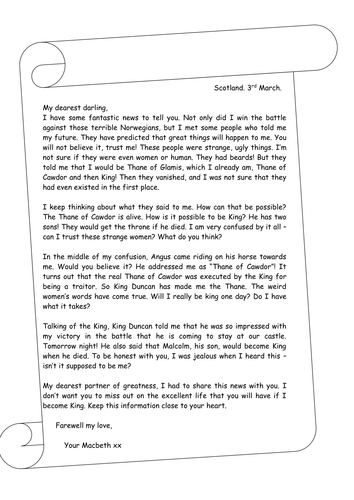 Scotland. 3rd March.
My dearest darling,
I have some fantastic news to tell you. Not only did I win the battle
against those terrible Norwegians, but I met some people who told me
my future. They have predicted that great things will happen to me. You
will not believe it, trust me! These people were strange, ugly things. I'm
not sure if they were even women or human. They had beards! But they
told me that I would be Thane of Glamis, which I already am, Thane of
Cawdor and then King! Then they vanished, and I was not sure that they
had even existed in the first place.
I keep thinking about what they said to me. How can that be possible?
The Thane of Cawdor is alive. How is it possible to be King? He has two
sons! They would get the throne if he died. I am very confused by it all –
can I trust these strange women? What do you think?
In the middle of my confusion, Angus came riding on his horse towards
me. Would you believe it? He addressed me as "Thane of Cawdor"! It
turns out that the real Thane of Cawdor was executed by the King for
being a traitor. So King Duncan has made me the Thane. The weird
women's words have come true. Will I really be king one day? Do I have
what it takes?
Talking of the King, King Duncan told me that he was so impressed with
my victory in the battle that he is coming to stay at our castle.
Tomorrow night! He also said that Malcolm, his son, would become King
when he died. To be honest with you, I was jealous when I heard this –
isn't it supposed to be me?
My dearest partner of greatness, I had to share this news with you. I
don't want you to miss out on the excellent life that you will have if I
become King. Keep this information close to your heart.
Farewell my love,
Your Macbeth xx